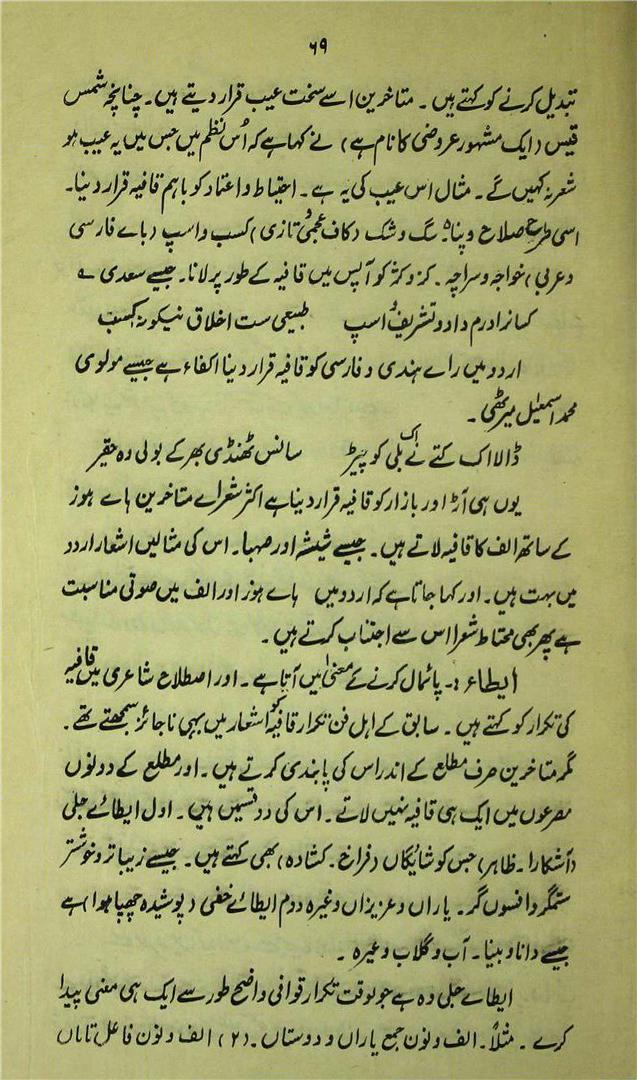 ۶۹
تبدیل کرنے کو کہتے ہیں ۔ متاخرین اسے سخت عیب قرار دیتے ہیں ۔ چنانچہ شمس
قیس (ایک مشہور عروضی کا نام ہے) نے کہا ہے کہ اُس نظم میں جس میں یہ عیب ہو
شعر نہ کہیں گے ۔ مثال اس عیب کی یہ ہے ۔ احتیاط و اعتماد کو باہم قافیہ قرار دینا ۔
اسی طرح صلاح و پناہ ۔ سگ و شک (کاف عجمی و تازی) کسب و اسپ (باے فارسی
و عربی) خواجہ و سراچہ ۔ کو آپس میں قافیہ کے طور پر لانا ۔ جیسے سعدی ؎
درم داد و تشریف و اسپ طبیعی ست اخلاق نیکو نہ کسب
اردو میں راے ہندی و فارسی کو قافیہ قرار دینا اکفاء ہے جیسے مولوی
محمد اسمعیل میرٹھی ۔
ڈالا اک کتے نے اک بلی کو چیڑ سانس ٹھنڈی بھر کے بولی وہ حقیر
یوں ہی آڑا اور بازار کو قافیہ قرار دینا ہے اکثر شعراے متاخرین ہاے ہوز
کے ساتھ الف کا قافیہ لاتے ہیں ۔ جیسے شیشہ اور صہبا ۔ اس کی مثالیں اشعار اردو
میں بہت ہیں ۔ اور کہا جاتا ہے کہ اردو میں ہاے ہوز اور الف میں صوتی مناسبت
ہے پھر بھی محتاط شعرا اس سے اجتناب کرتے ہیں ۔
ایطاء :۔ پائمال کرنے کے معنیٰ میں آتا ہے ۔ اور اصطلاح شاعری میں قافیہ
کی تکرار کو کہتے ہیں ۔ سابق کے اہل فن تکرار قافیہ کو اشعار میں بہی ناجائز سمجھتے تھے ۔
مگر متاخرین صرف مطلع کے اندر اس کی پابندی کرتے ہیں ۔ اور مطلع کے دونوں
مصرعوں میں ایک ہی قافیہ نہیں لاتے ۔ اس کی دو قسمیں ہیں ۔ اول ایطائے جلی
(آشکارا ۔ ظاہر) جس کو شائگاں (فراخ ۔ کشادہ) بھی کہتے ہیں ۔ جیسے زیباتر و خوشتر
ستمگر و افسوں گر ۔ یاراں و عزیزاں وغیرہ دوم ایطائے خفی (پوشیدہ چھپا ہوا) ہے
جیسے دانا و بینا ۔ آب و گلاب وغیرہ ۔
ایطاے جلی وہ ہے جو بوقت تکرار قوافی واضح طور سے ایک ہی معنی پیدا
کرے ۔ مثلاً ۔ الف و نون جمع یاراں و دوستاں ۔ (۲) الف و نون فاعل تاباں